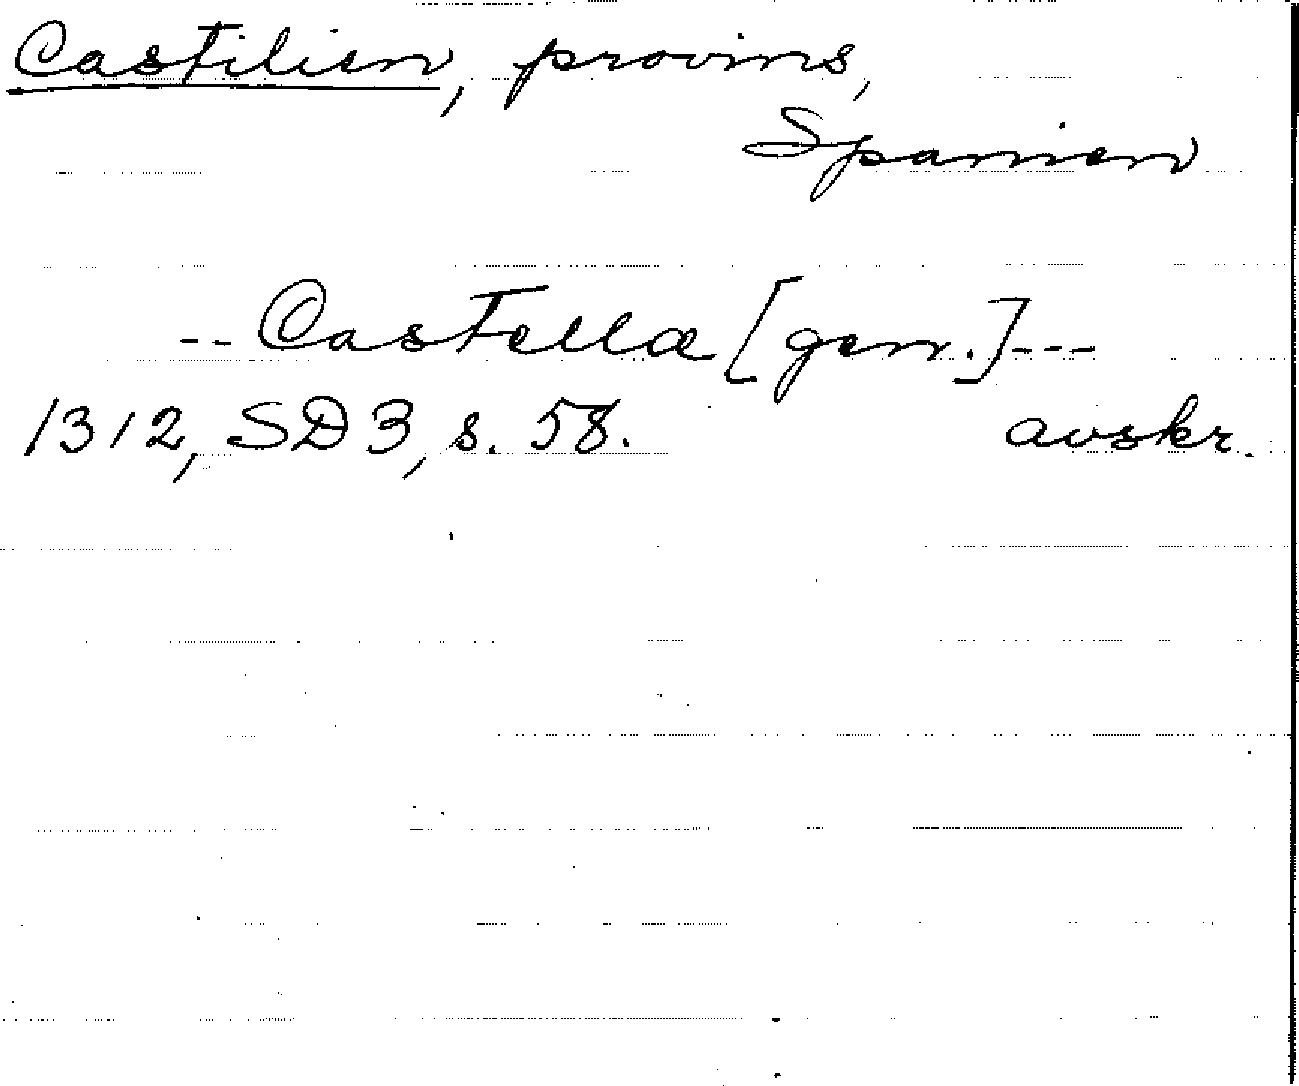 Castilien, provins,
Spanien
-- Castellæ [gen.] ---
1312, SD 3, s. 58. avskr.